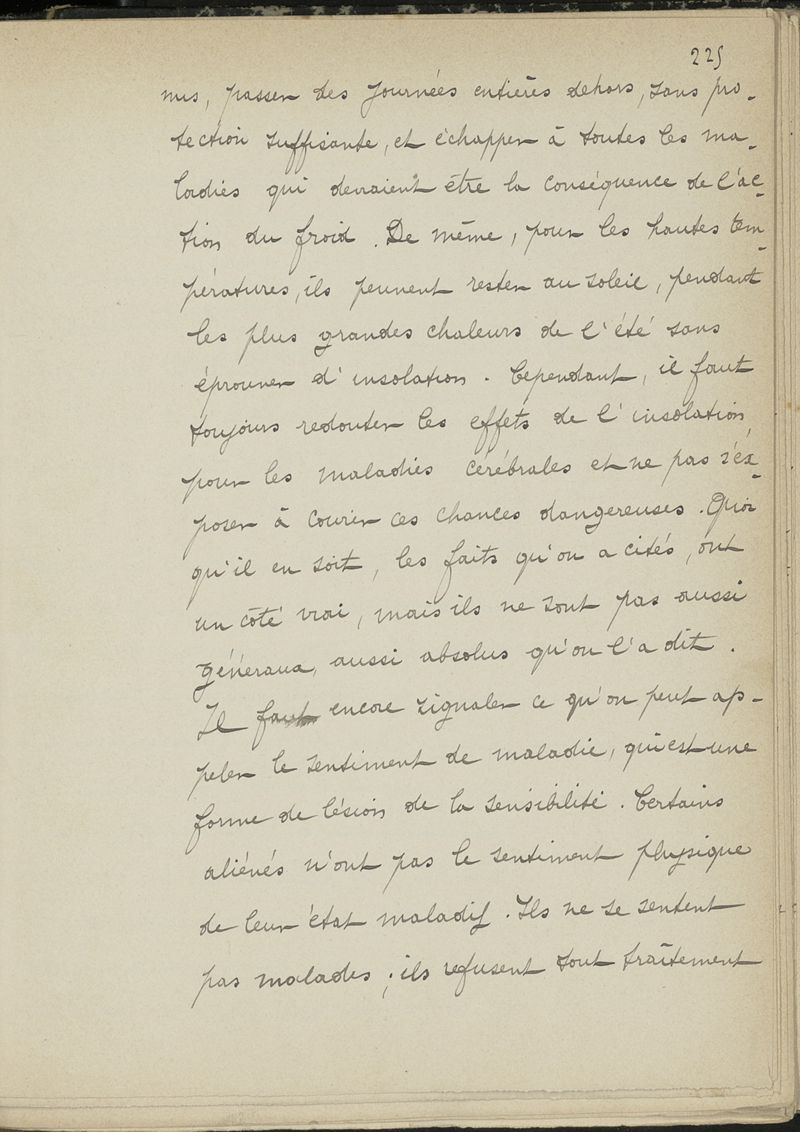 225
nus, passer des journées entières dehors, sans pro-
tection suffisante, et échapper à toutes les ma-
ladies qui devraient être la conséquence de l'ac-
tion du froid. De même, pour les hautes tem-
pératures, ils peuvent rester au soleil, pendant
les plus grandes chaleurs de l'été sans
éprouver d'insolation. Cependant, il faut
toujours redouter les effets de l'insolation
pour les maladies cérébrales et ne pas s'ex-
poser à courir ces chances dangereuses. Quoi
qu'il en soit, les faits qu'on a cités, ont
un côté vrai, mais ils ne sont pas aussi
généraux, aussi absolus qu'on l'a dit.
Il faut encore signaler ce qu'on peut ap-
peler le sentiment de maladie, qui est une
forme de lésion de la sensibilité. Certains
aliénés n'ont pas le sentiment physique
de leur état maladif. Ils ne se sentent
pas malades; ils refusent tout traitement